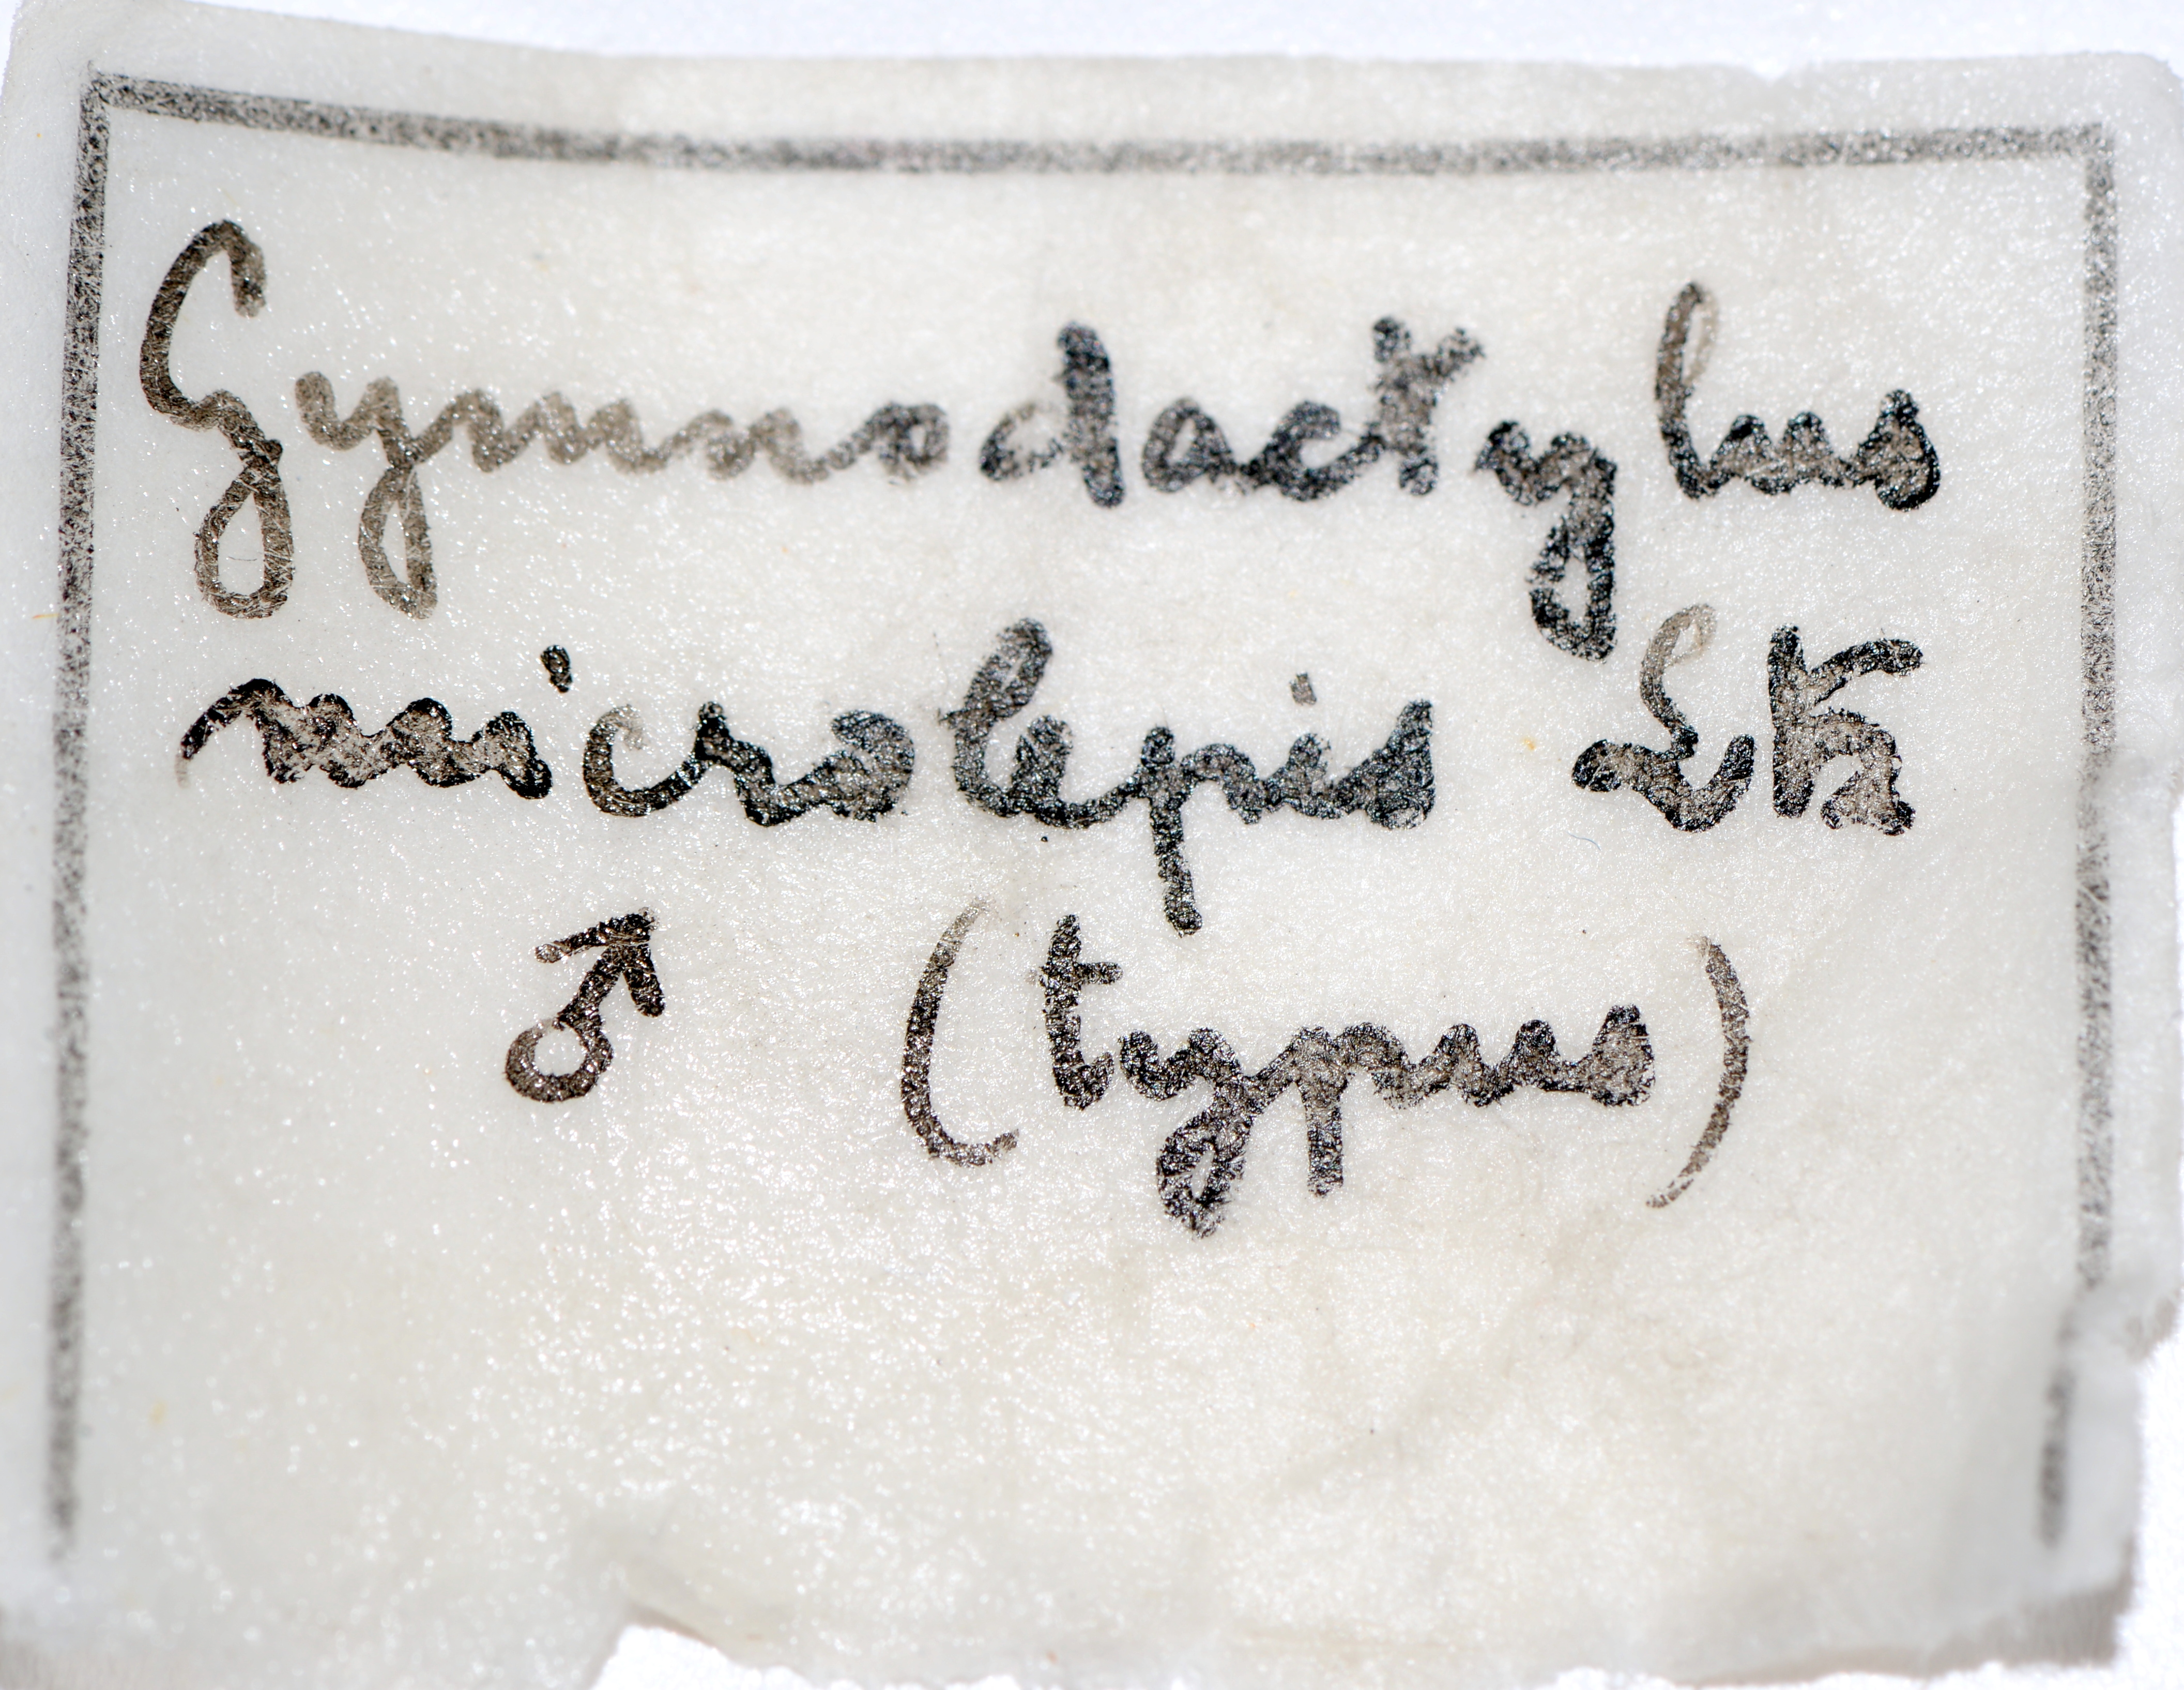 Gymnodactylus
microlepis Ltz
♂ (typus)